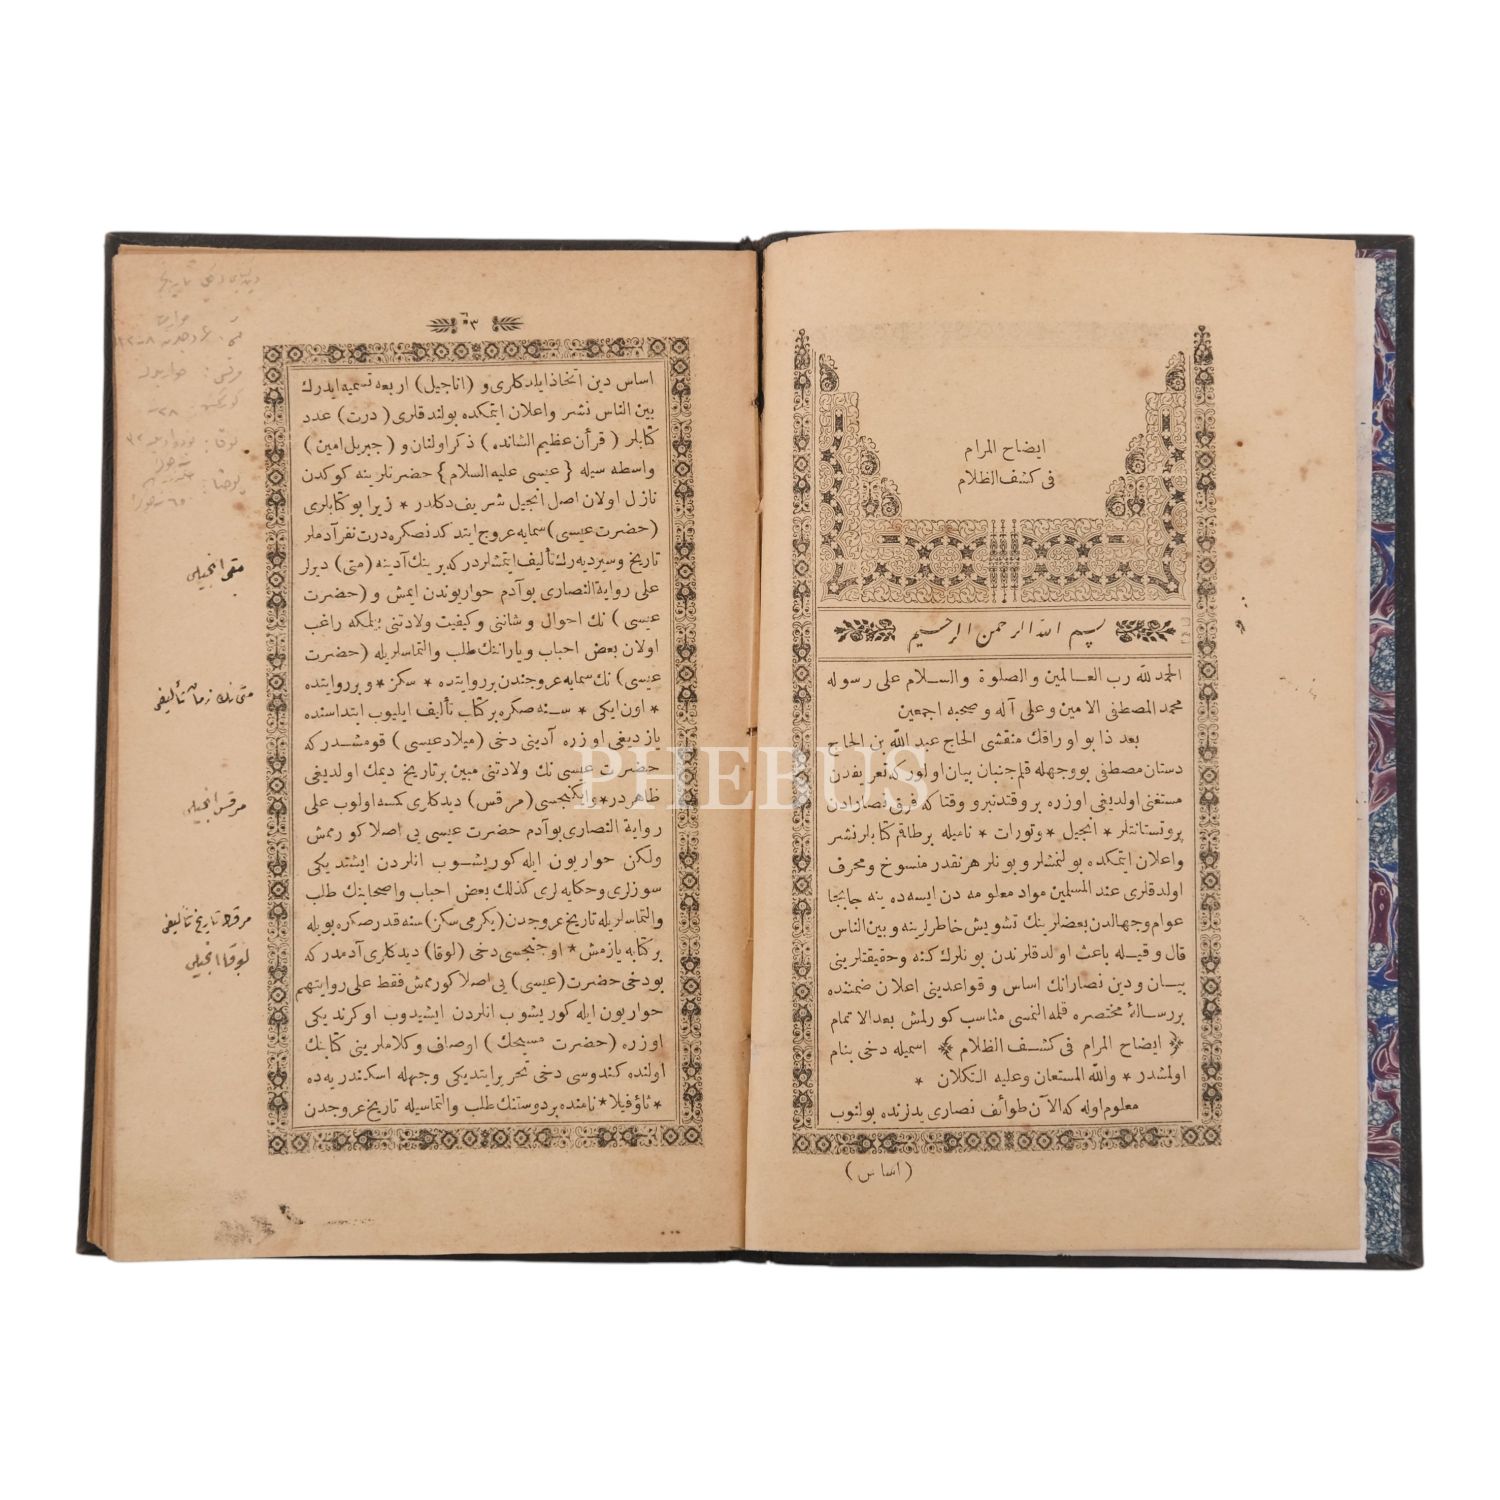 ايضاح المرام
فى كشف الظلام
بسم الله الرحمن الرحيم
الحمد لله رب العالمين والصلوة والسلام على رسوله
محمد المصطفى الامين وعلى آله وصحبه اجمعين
بعد ذا بو اوراقك منقشى الحاج عبد الله بن الحاج
دستان مصطفى بووجهله قلمجنبان بيان اولوركه تعريفدن
مستغنى اولديغى اوزره بروقتدنبرو وقتا كه فرق نصارادن
پروتستانتلر * انجيل * وتورات * ناميله برطاقم كتابلر نشر
واعلان ايتمكده بولنمشلر وبونلر هرنقدر منسوخ ومحرف
اولدقلرى عند المسلمين مواد معلومه دن ايسه ده ينه جابجا
عوام وجهالدن بعضلرينك تشويش خاطرلرينه وبين الناس
قال وقيله باعث اولدقلرندن بونلرك كنه وحقيقتلرينى
بيان ودين نصارانك اساس وقواعدينى اعلان ضمننده
بررسالۀ مختصره قلمه النمسى مناسب كورلمش بعد الاتمام
﴿ ايضاح المرام فى كشف الظلام ﴾ اسميله دخى بنام
اولمشدر * والله المستعان وعليه التكلان *
معلوم اوله كه الآن طوائف نصارى يدلرنده بولنوب
(اساس)
٣
اساس دين اتخاذ ايلدكلرى و (اناجيل) اربعه تسميه ايدرك
بين الناس نشر واعلان ايتمكده بولندقلرى (درت) عدد
كتابلر (قرآن عظيم الشانده) ذكر اولنان و (جبريل امين)
واسطه سيله {عيسى عليه السلام} حضرتلرينه كوكدن
نازل اولان اصل انجيل شريف دكلدر * زيرا بوكتابلرى
(حضرت عيسى) سمايه عروج ايتدكدنصكره درت نفر آدملر
تاريخ وسير ديه رك تأليف ايتمشلردركه برينك آدينه (متى) ديرلر
على رواية النصارى بوآدم حواريوندن ايمش و (حضرت
عيسى) نك احوال وشاننى وكيفيت ولادتنى بيلمكه راغب
اولان بعض احباب ويارانتك طلب والتماسلريله (حضرت
عيسى) نك سمايه عروجندن بر روايتده * سكز * وبر روايتده
* اون ايكى * سنه صكره بركتاب تأليف ايليوب ابتداسنده
يازديغى اوزره آدينى دخى (ميلاد عيسى) قومشدركه
حضرت عيسى نك ولادتنى مبين برتاريخ ديمك اولديغى
ظاهردر * ايكنجيسى (مرقس) ديدكلرى كمسه اولوب على
رواية النصارى بوآدم حضرت عيسى يى اصلا كورمامش
ولكن حواريون ايله كوريشوب انلردن ايشتديكى
سوزلرى وحكايه لرى كذلك بعض احباب واصحابنك طلب
والتماسلريله تاريخ عروجدن (يكرمى سكز) سنه قدر صكره بويله
بركتابه يازمش * اوچنجيسى دخى (لوقا) ديدكلرى آدمدركه
بودخى حضرت (عيسى) يى اصلا كورمامش فقط على روايتهم
حواريون ايله كوريشوب انلردن ايشيدوب اوكرنديكى
اوزره (حضرت مسيحك) اوصاف وكلاملرينى كتابنك
اولنده كندوسى دخى تحرير ايتديكى وجهله اسكندريه ده
* ثاؤفيلا * نامنده بردوستنك طلب والتماسيله تاريخ عروجدن
متى انجيلى
متى نك زمان تأليفى
مرقس انجيلى
مرقسك تاريخ تأليفى
لوقا انجيلى
PHEBUS